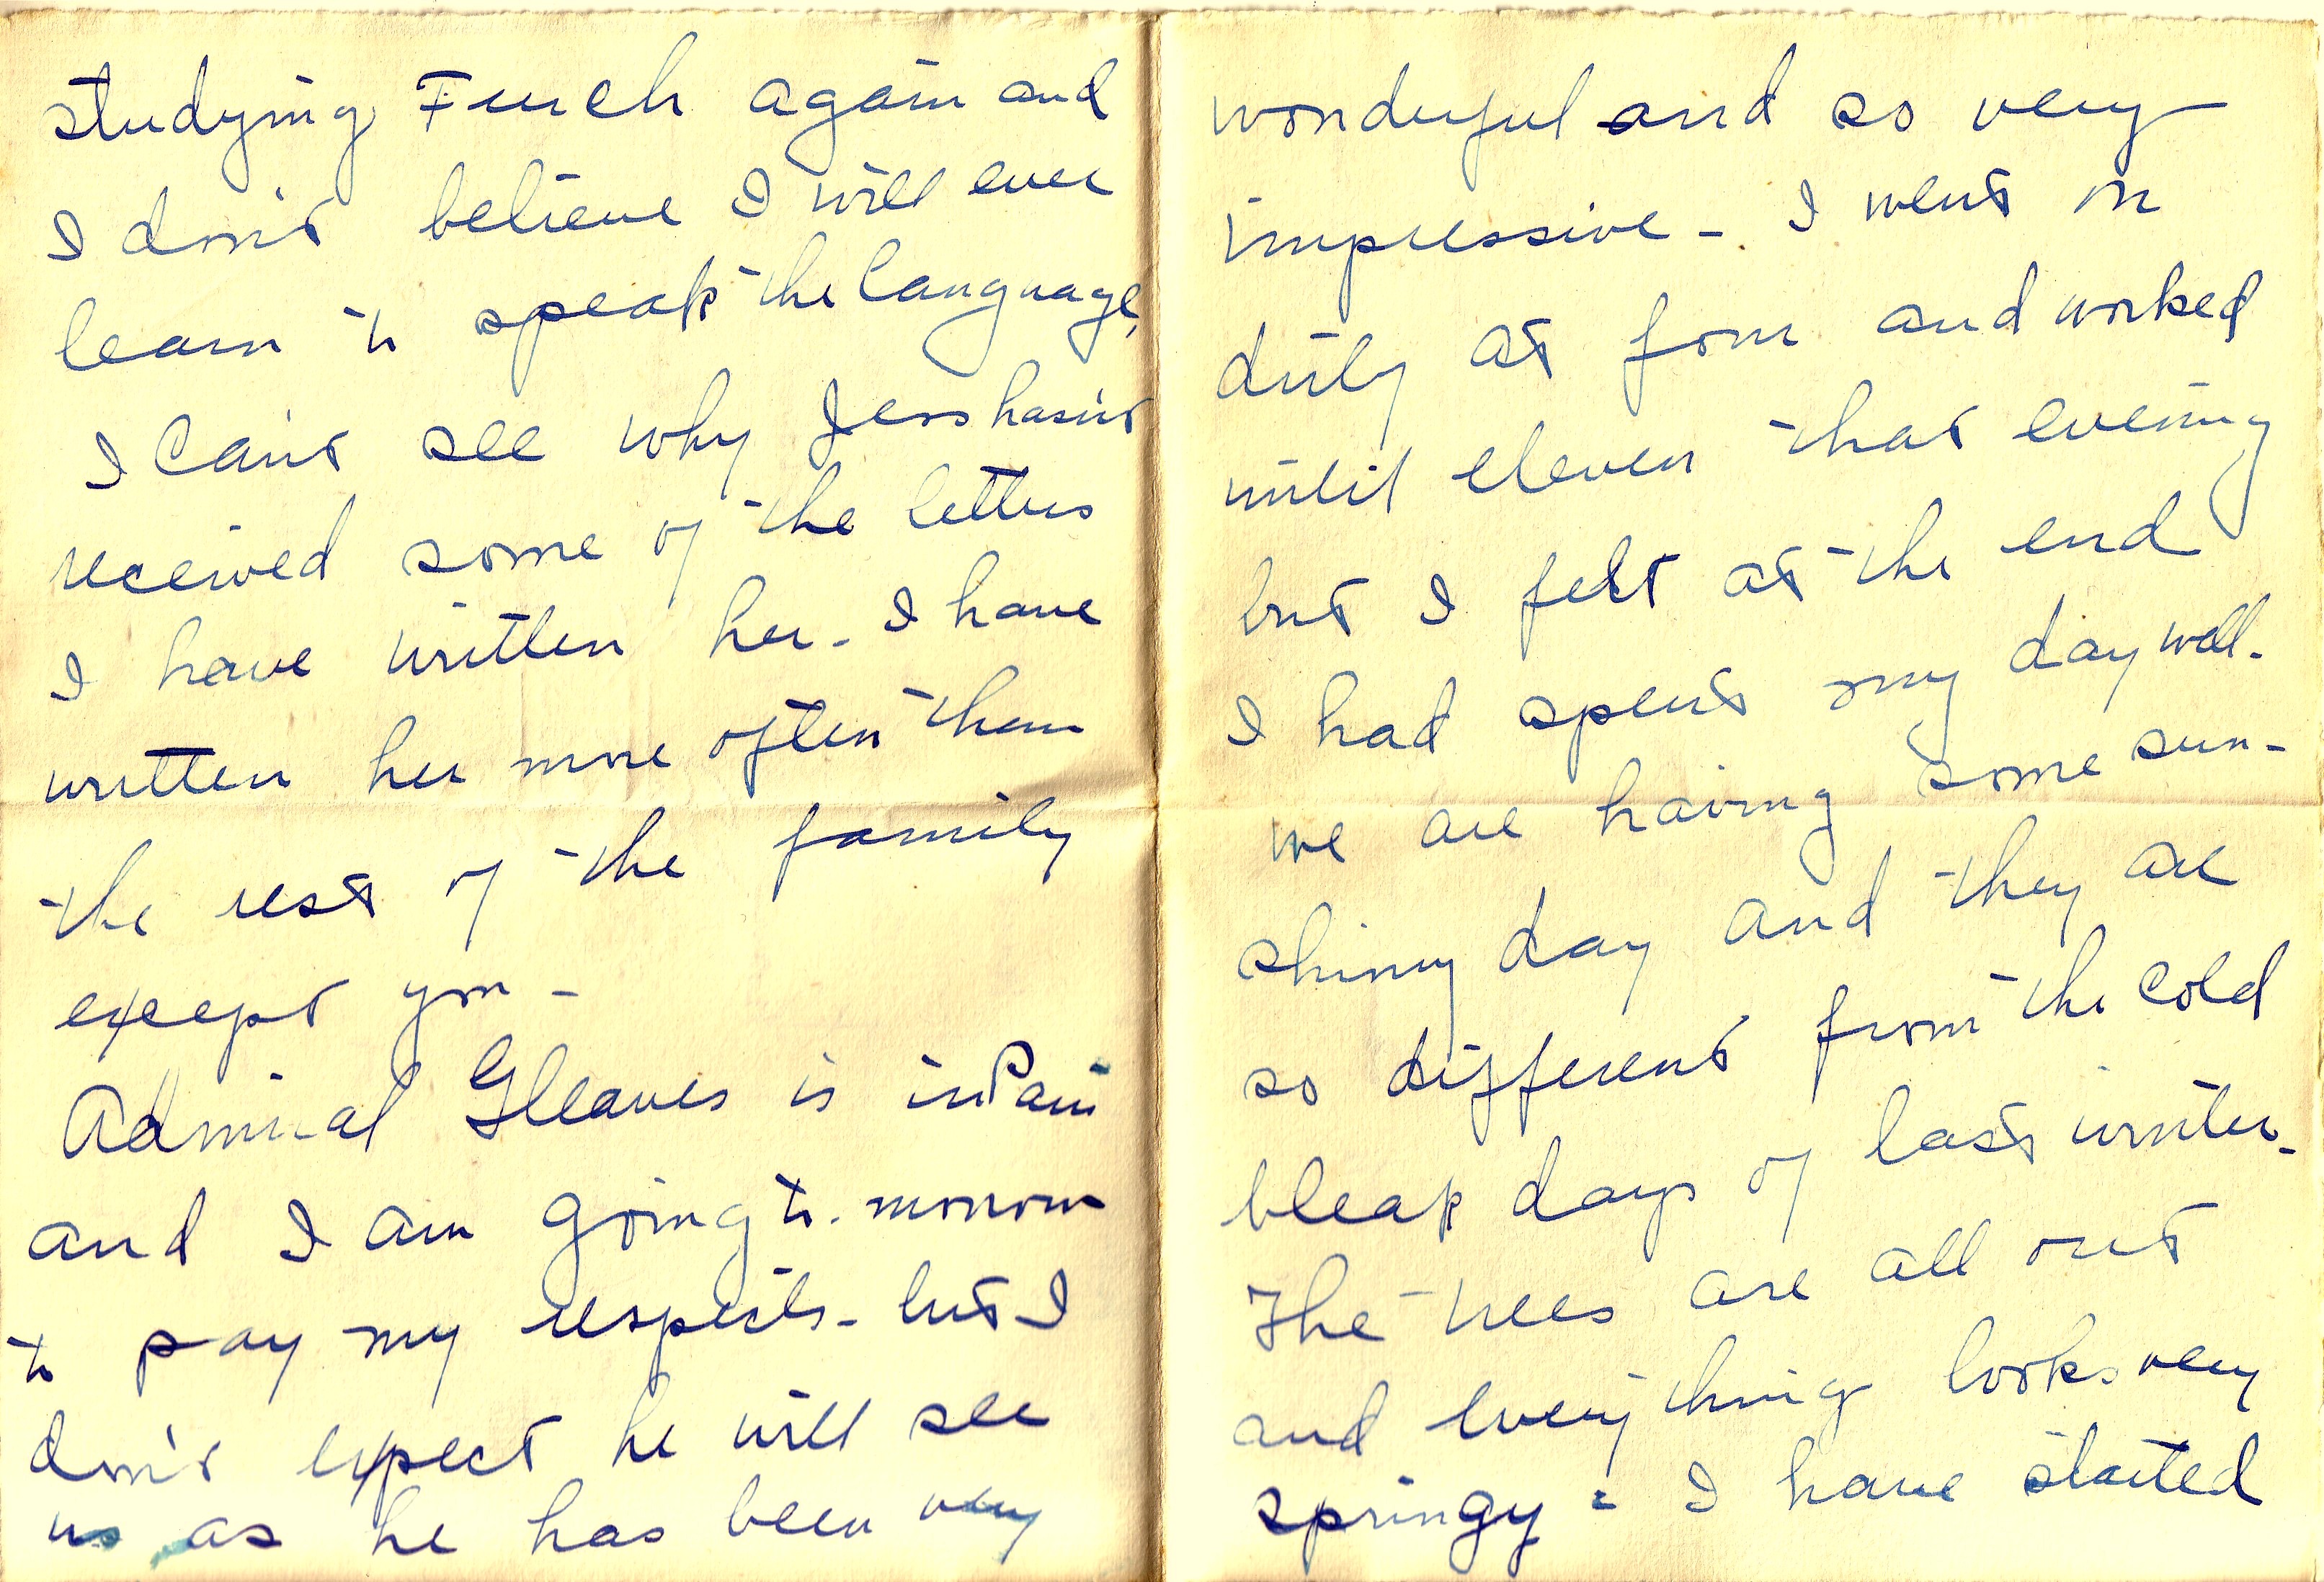 studying French again and
I don't believe I will ever
learn to speak the language,
I can't see why Jess hasn't
received some of the letters
I have written her - I have
written her more often than
the rest of the family
except you -
Admiral Gleaves is in Paris
and I am going to-morrow
to pay my respects - but I
don't expect he will see
us as he has been very
wonderful and so very
impressive - I went on
duty at four and worked
until eleven that evening
but I felt at the end
I had spent my day well -
we are having some sun-
shiny day and they are
so different from the cold
bleak days of last winter -
The trees are all out
and everything looks very
springy - I have started